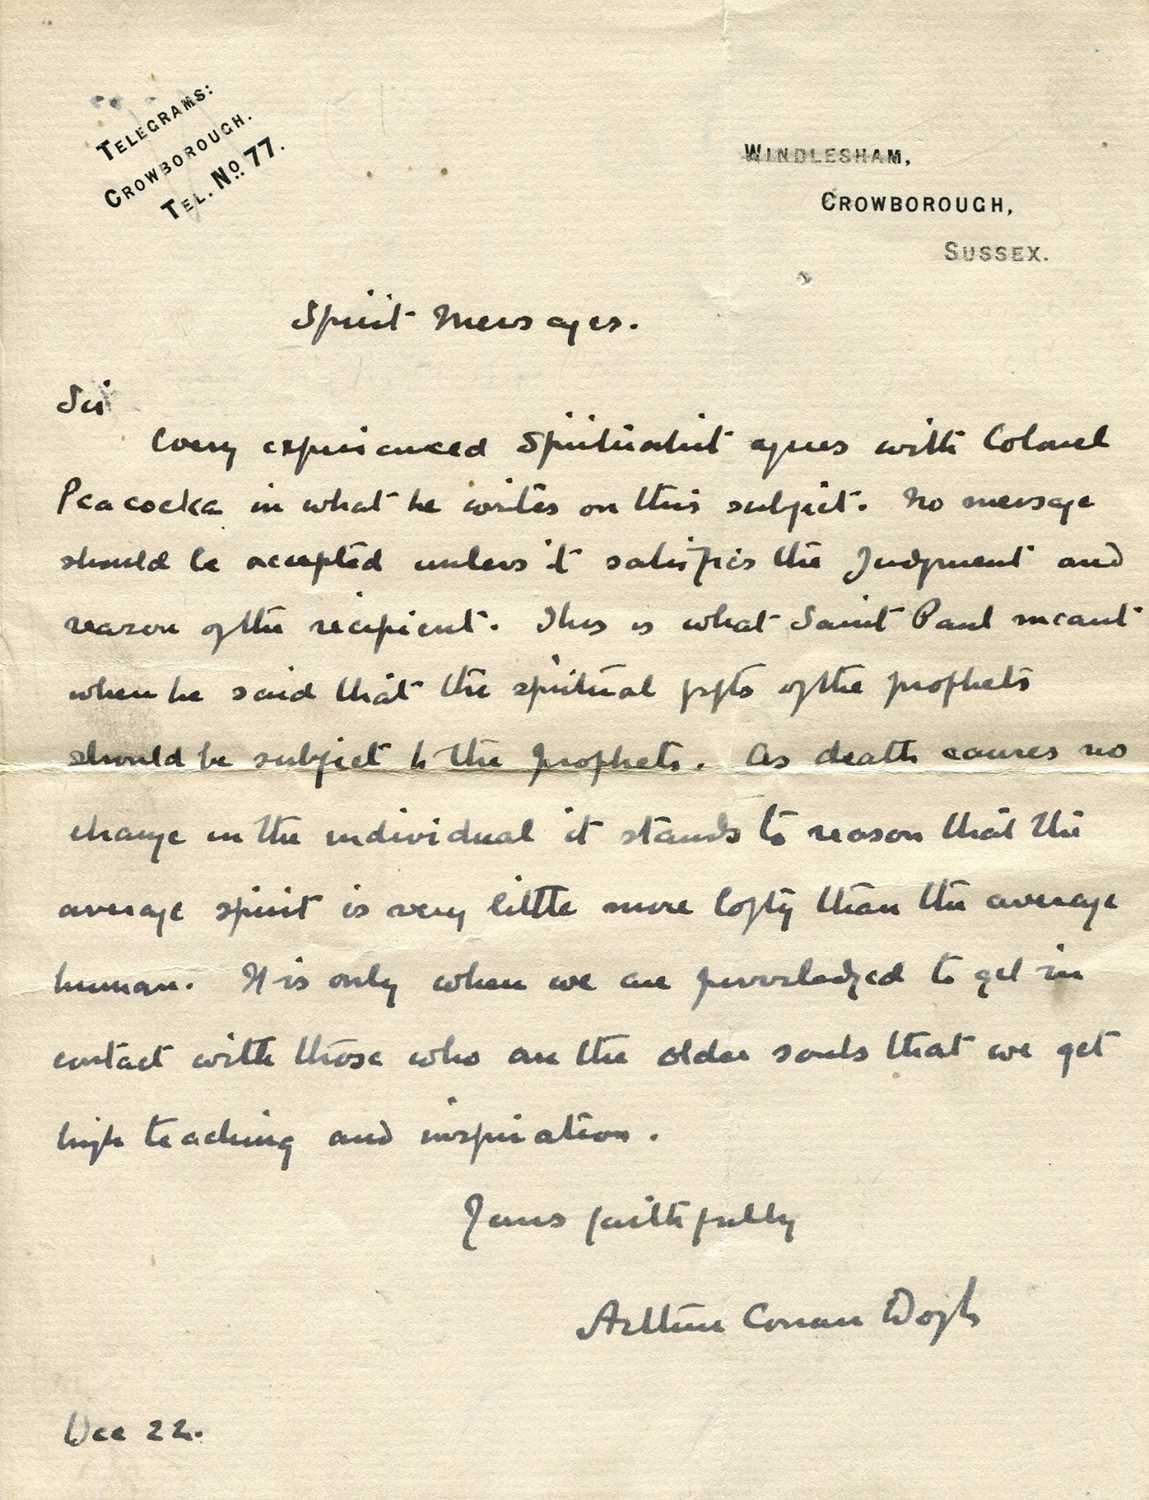 TELEGRAMS:
CROWBOROUGH.
TEL. No. 77.
WINDLESHAM,
CROWBOROUGH,
SUSSEX.
Spirit Messages.
Sir
Every experienced Spiritualist agrees with Colonel
Peacocke in what he writes on this subject. No message
should be accepted unless it satisfies the Judgment and
reason of the recipient. This is what Saint Paul meant
when he said that the spiritual gifts of the prophets
should be subject to the prophets. As death causes no
change in the individual it stands to reason that the
average spirit is very little more lofty than the average
human. It is only when we are priviledged to get in
contact with those who are the older souls that we get
high teaching and inspiration.
Yours faithfully
Arthur Conan Doyle
Dec 22.